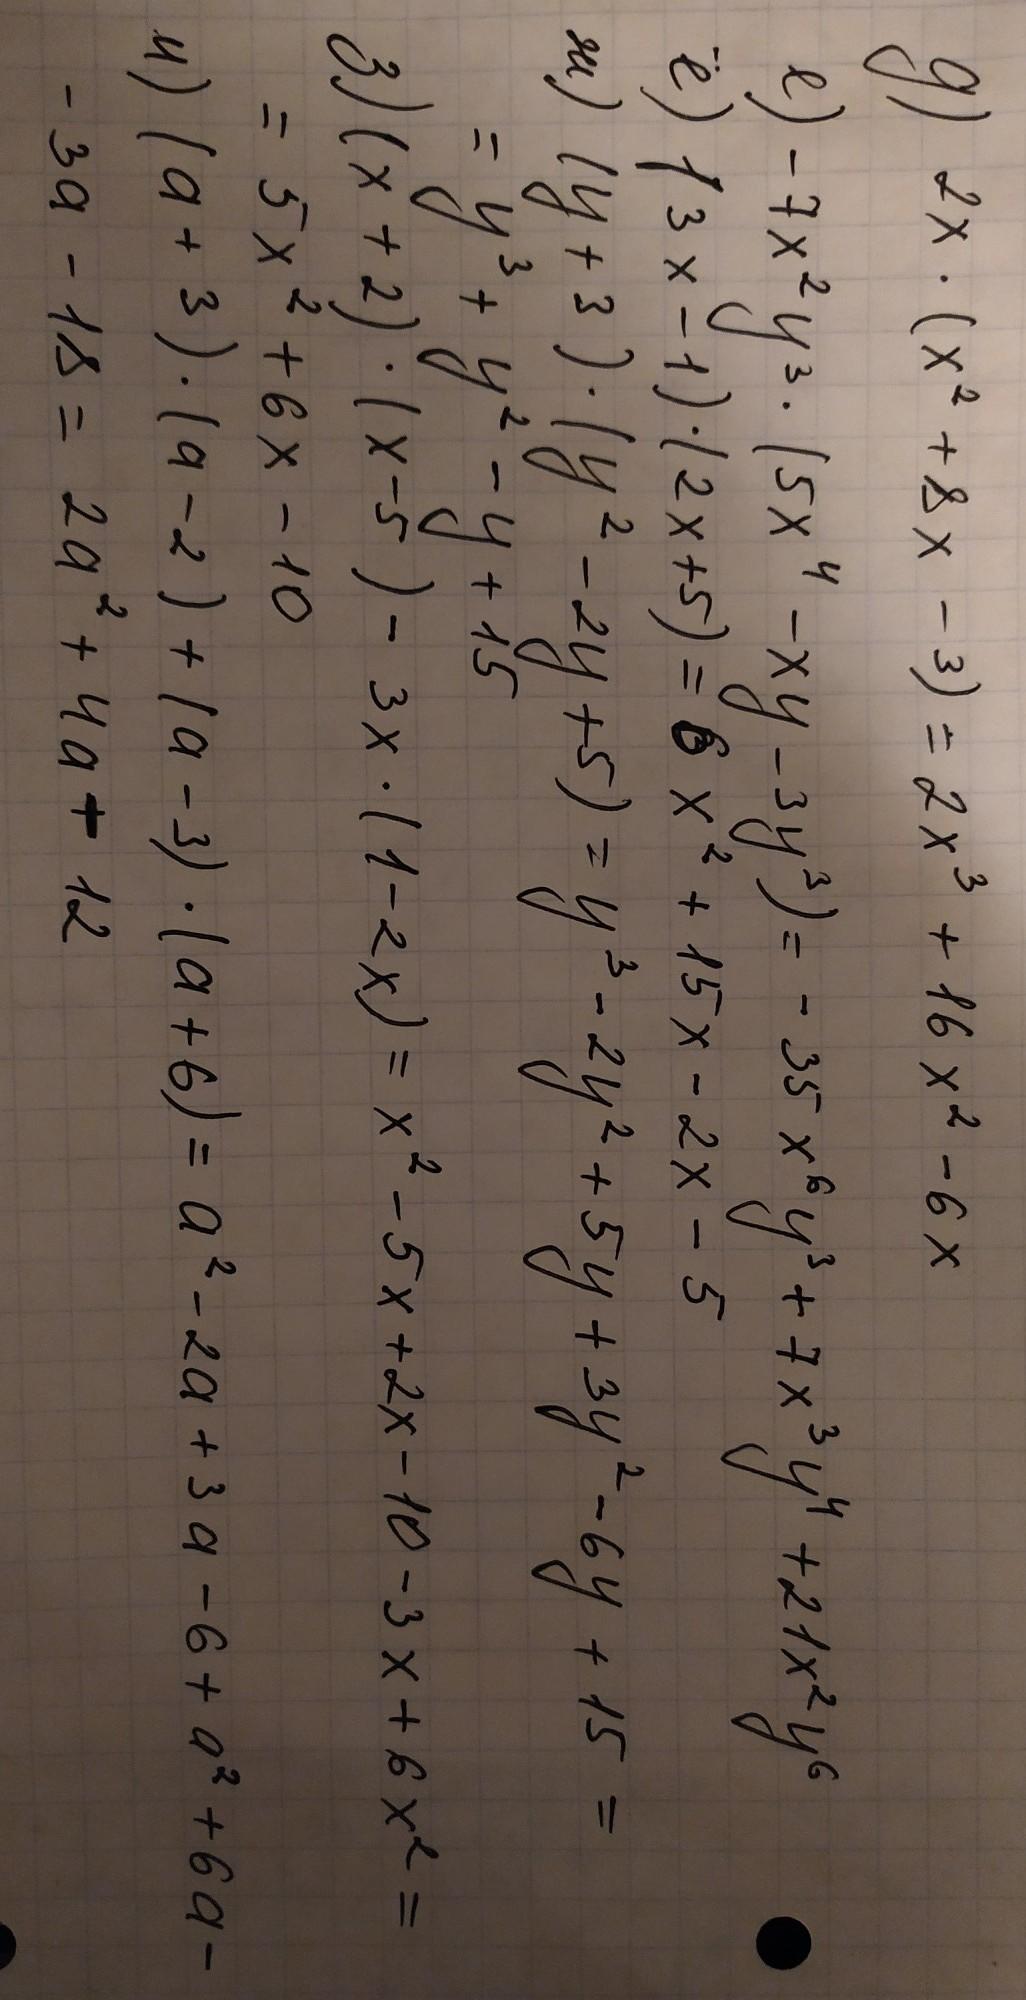 д) 2x · (x² + 8x - 3) = 2x³ + 16x² - 6x
е) -7x²y³ · (5x⁴ - xy - 3y³) = -35x⁶y³ + 7x³y⁴ + 21x²y⁶
ё) (3x - 1) · (2x + 5) = 6x² + 15x - 2x - 5
ж) (y + 3) · (y² - 2y + 5) = y³ - 2y² + 5y + 3y² - 6y + 15 =
= y³ + y² - y + 15
з) (x + 2) · (x - 5) - 3x · (1 - 2x) = x² - 5x + 2x - 10 - 3x + 6x² =
= 5x² + 6x - 10
и) (a + 3) · (a - 2) + (a - 3) · (a + 6) = a² - 2a + 3a - 6 + a² + 6a -
- 3a - 18 = 2a² + 4a + 12